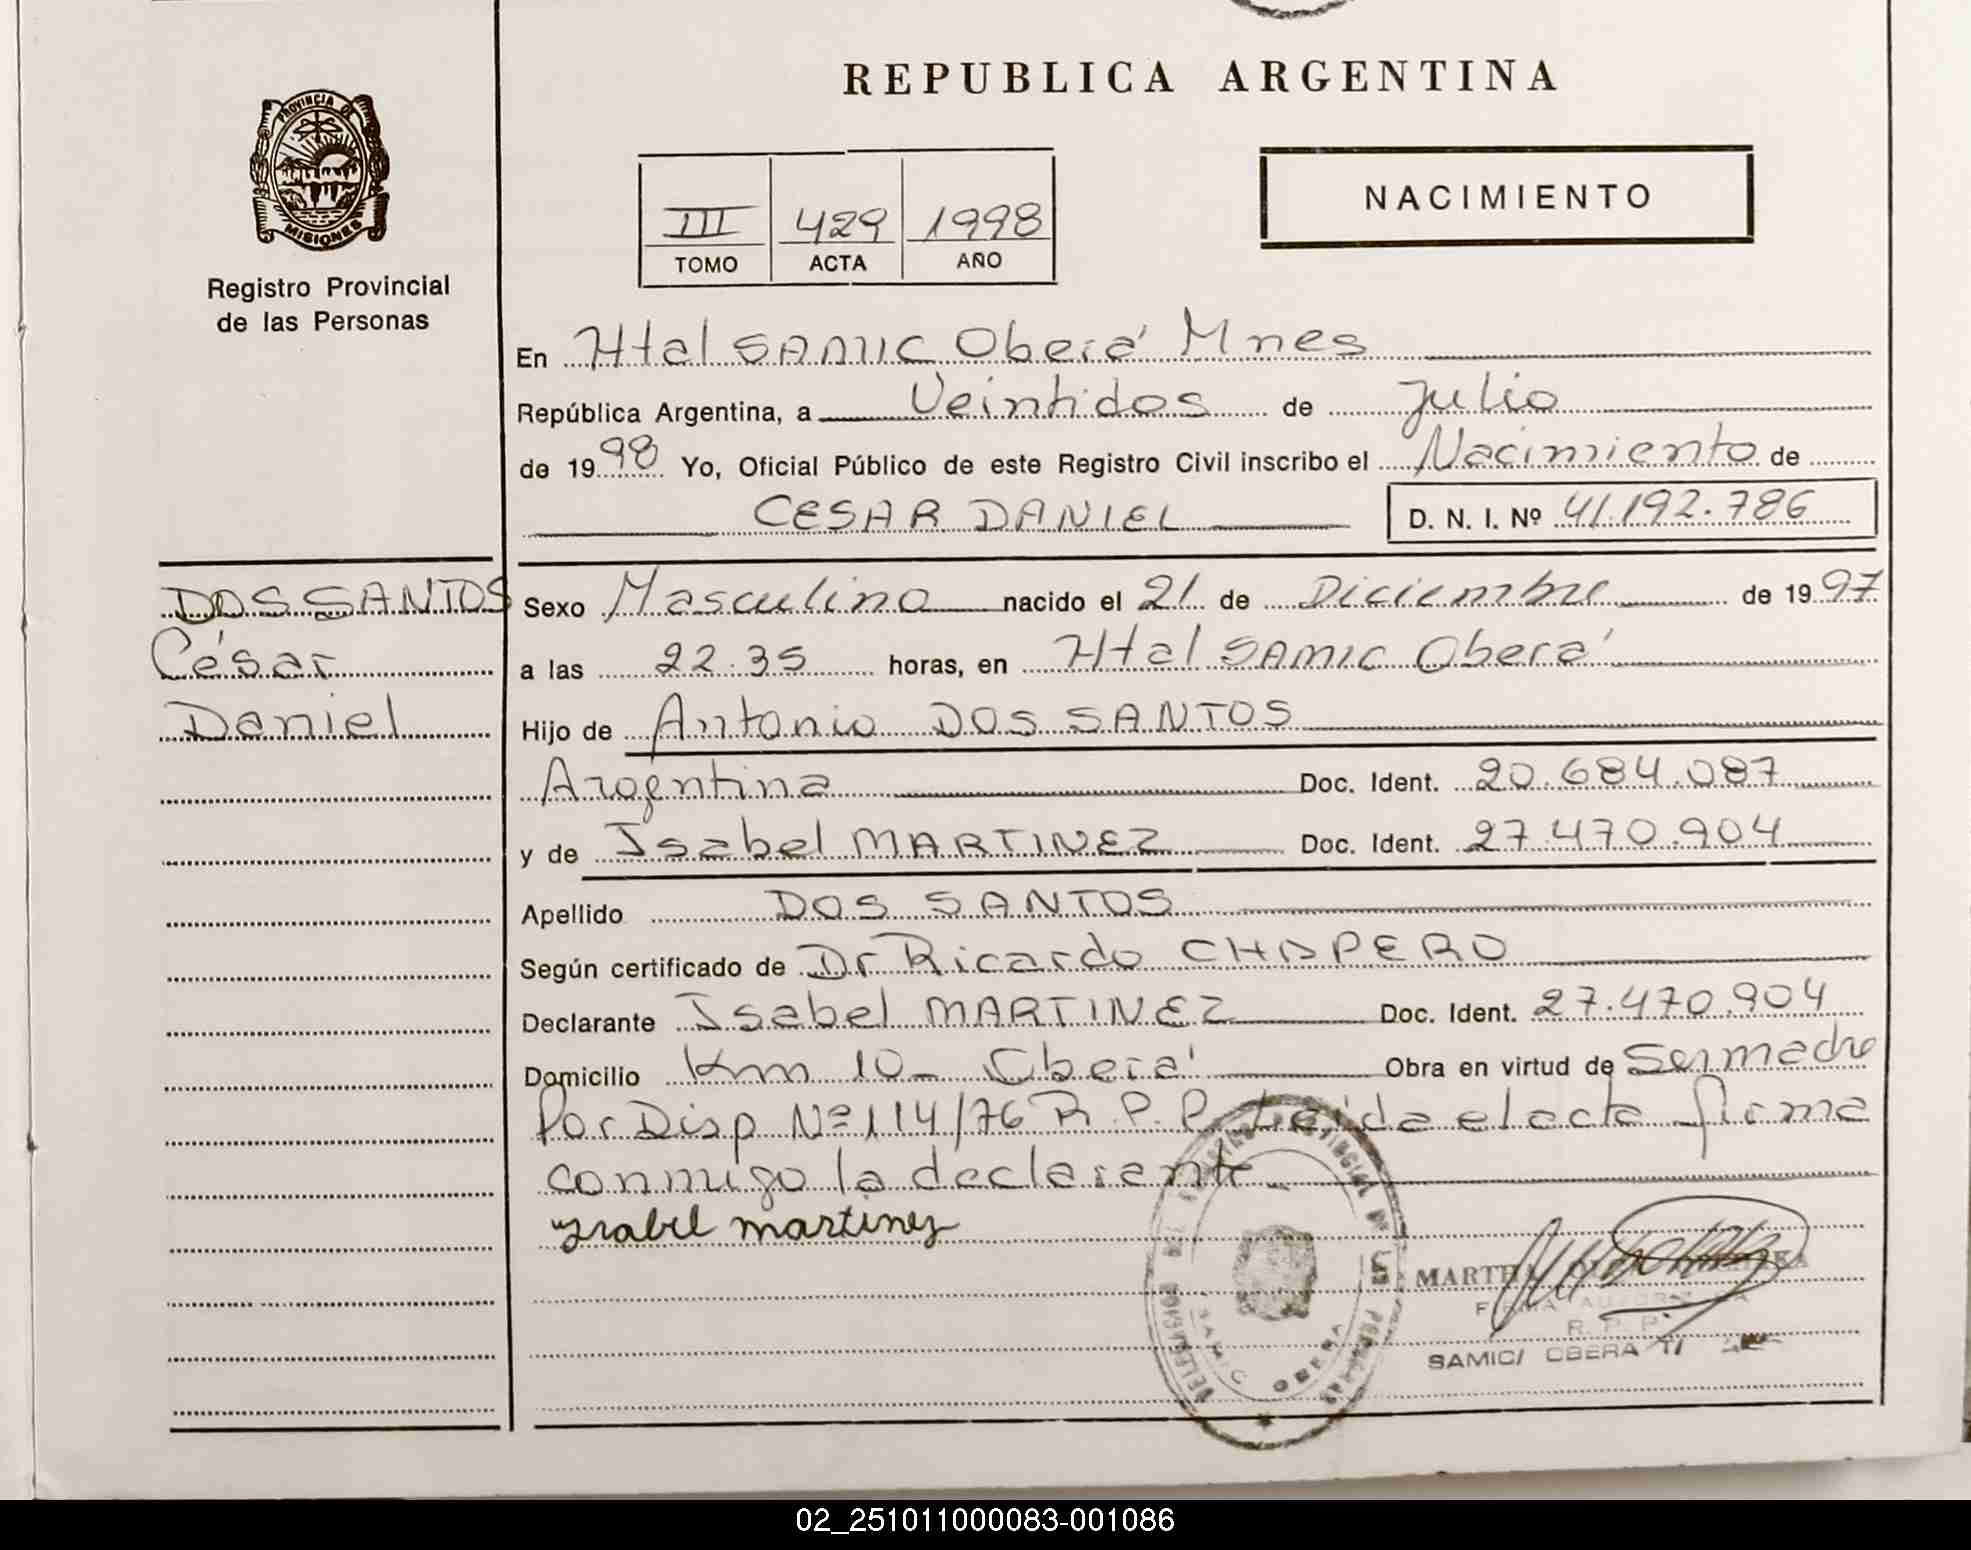 REPUBLICA ARGENTINA
PROVINCIA DE
MISIONES
Registro Provincial
de las Personas
III 429 1998
TOMO ACTA AÑO
NACIMIENTO
En Htal SAMIC Oberá Mnes
República Argentina, a Veintidos de Julio
de 1998 Yo, Oficial Público de este Registro Civil inscribo el Nacimiento de
CESAR DANIEL D. N. I. Nº 41.192.786
DOS SANTOS
César
Daniel
Sexo Masculino nacido el 21 de Diciembre de 1997
a las 22.35 horas, en Htal SAMIC Oberá
Hijo de Antonio DOS SANTOS
Argentina Doc. Ident. 20.684.087
y de Isabel MARTINEZ Doc. Ident. 27.470.904
Apellido DOS SANTOS
Según certificado de Dr Ricardo CHAPERO
Declarante Isabel MARTINEZ Doc. Ident. 27.470.904
Domicilio Km 10- Oberá Obra en virtud de Ser madre
Por Disp Nº 114/76 R.P.P. Leida el acta firma
conmigo la declarante
Ysabel martinez
MARTHA
FIRMA AUTORIZADA
R. P. P.
SAMIC/ OBERA
SAMIC OBERA
02_251011000083-001086